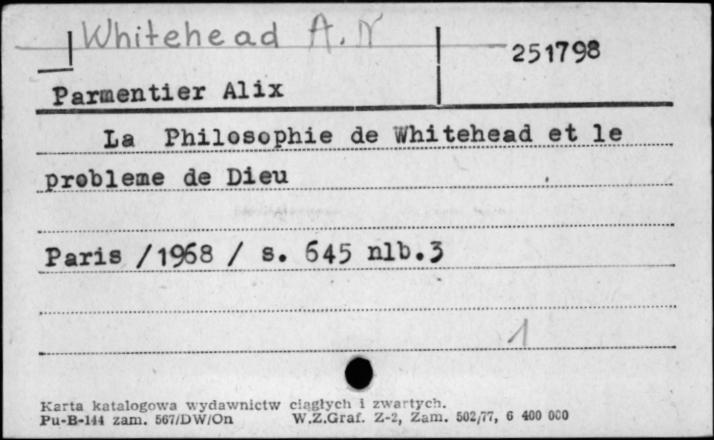 Whitehead A.N
251798
Parmentier Alix
La Philosophie de Whitehead et le
probleme de Dieu
Paris /1968 / s. 645 nlb.3
1
Karta katalogowa wydawnictw ciągłych i zwartych.
Pu-B-144 zam. 567/DW/On W.Z.Graf. Z-2, Zam. 502/77, 6 400 000